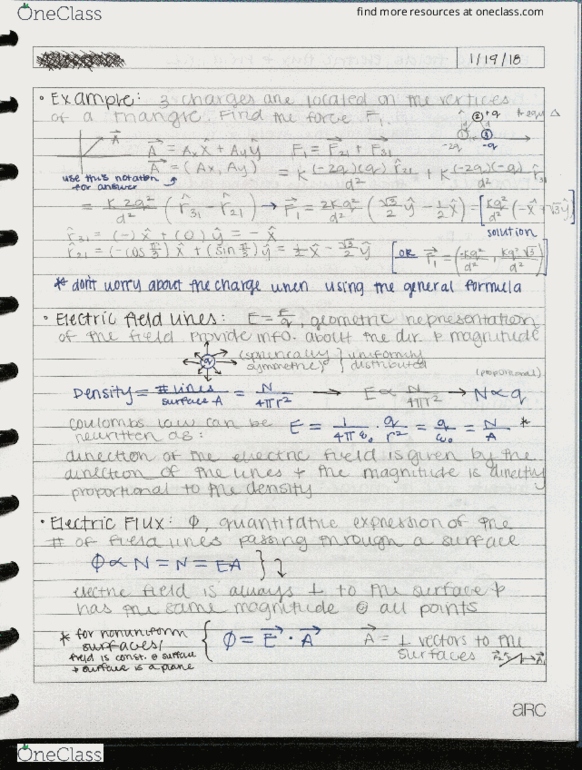 OneClass
find more resources at oneclass.com
1/19/18
• Example: 3 charges are located on the vertices
of a triangle. Find the force F₁.
② +q
① ③
-2q -q
A⃗
A⃗ = AₓX + Aᵧŷ F₁ = F⃗₂₁ + F⃗₃₁
A⃗ = (Ax, Ay) = K (-2q)(q)/d² r̂₂₁ + K (-2q)(-q)/d² r̂₃₁
use this notation
for answer
= K2q²/d² (r̂₃₁ - r̂₂₁) → F⃗₁ = 2Kq²/d² (√3/2 ŷ - 1/2 x̂) = [Kq²/d² (-x̂ + √3 ŷ)]
solution
r̂₃₁ = (-) x̂ + (0) ŷ = - x̂
r̂₂₁ = (-cos π/3) x̂ + (sin π/3) ŷ = 1/2 x̂ - √3/2 ŷ
[OR F⃗₁ = (-Kq²/d², Kq²√3/d²)]
* don't worry about the charge when using the general formula
• Electric field lines: E = F/q, geometric representation
of the field. Provide info. about the dir. + magnitude
q
(spherically symmetric) uniformly distributed
(proportional)
Density = # lines/surface A = N/4πr² → E ∝ N/4πr² → N ∝ q
coulombs law can be
rewritten as: E = 1/4πε₀ · q/r² = q/ε₀ = N/A *
direction of the electric field is given by the
direction of the lines + the magnitude is directly
proportional to the density
• Electric Flux: Φ, quantitative expression of the
# of field lines passing through a surface
Φ ∝ N = N = EA
electric field is always ⊥ to the surface +
has the same magnitude @ all points
* for nonuniform
surfaces/
field is const. @ surface
+ surface is a plane
Φ = E⃗ · A⃗
A⃗ = ⊥ vectors to the
surfaces
arc
OneClass